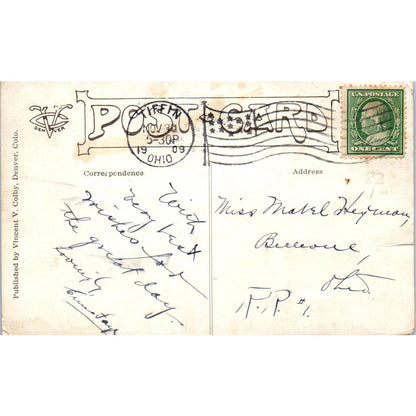 POST CARD
TIFFIN
NOV 30
5-30P
1909
OHIO
U.S. POSTAGE
ONE CENT
DENVER
Correspondence
Address
Published by Vincent V. Colby, Denver, Colo.
With
very best
wishes for
the great day.
Lovingly
Miss Mabel Heyman,
Bellevue,
Ohio.
R.R. #1.